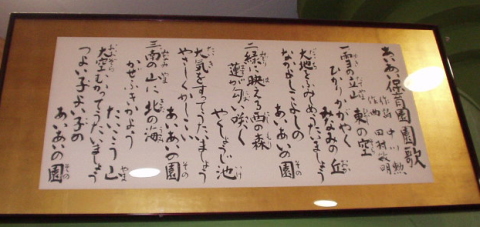 あいあい保育園園歌
作詞 中川 勲
作曲 田村 明
一 雪の立山 東の空
ひかりかがやく みなみの丘
大地をふみしめ うたいましょう
なかよしこよしの あいあいの園
二 緑に映える西の森
蓮が匂い咲く やしょうじ池
大気をすって うたいましょう
やさしく かしこい あいあいの園
三 雨の山に 北の海
かぜふきかよう たいこう山
大空にむかって うたいましょう
つよい子 よい子の あいあいの園